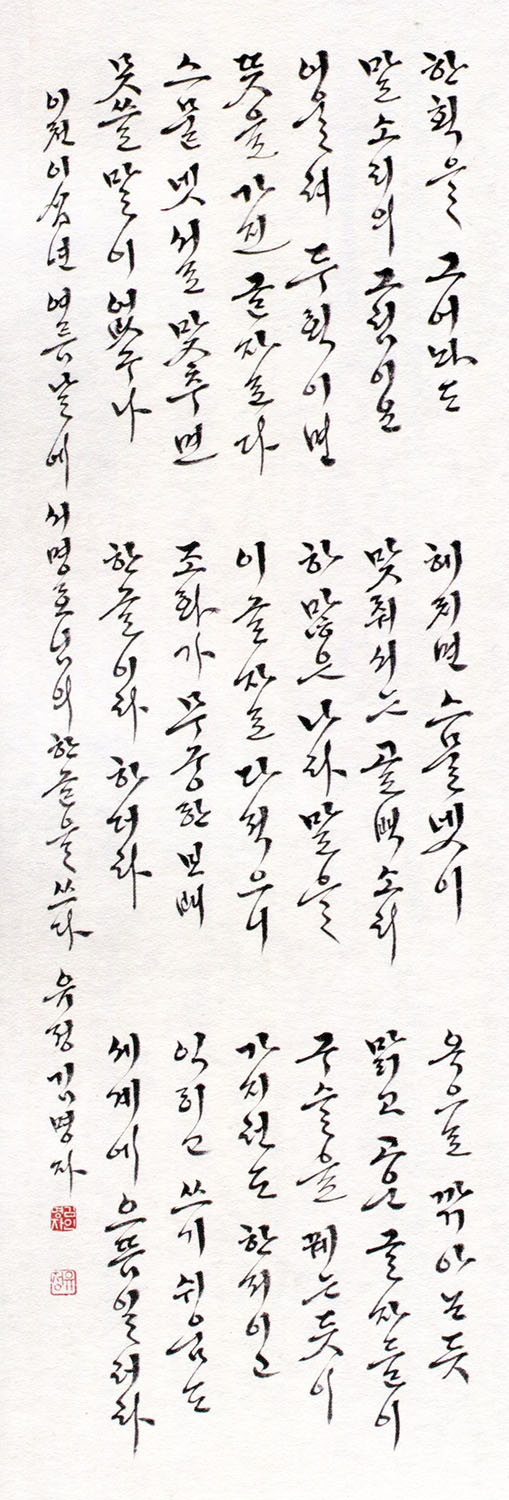 한 획을 그어봐도
말소리의 그림이요
어울려 두 획이면
뜻을 가진 글자로다
스물넷 서로 맞추면
못쓸 말이 없구나
헤치면 스믈넷이
맞춰서는 골백 소리
하많은 나라말을
이 글자로 다 적으니
조화가 무궁한 보배
한글이라 하더라
옥으로 깎아논 듯
맑고 고운 글자들이
구슬을 꿰는 듯이
가지런도 한저이고
익히고 쓰기 쉬움도
세계에 으뜸일러라
이천이십년 여름날에 서명호님의 한글을 쓰다 유정 김명자